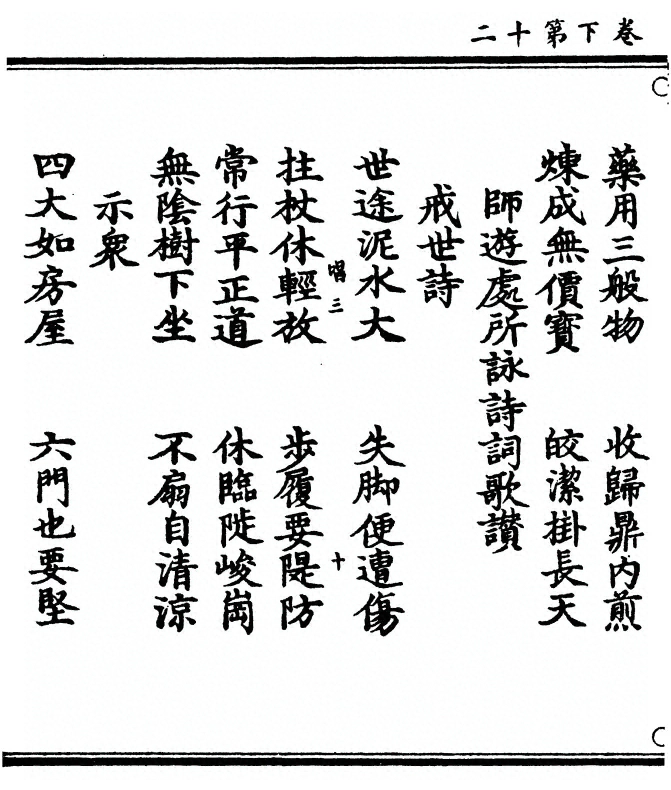 卷下第十二
藥用三般物　收歸鼎内煎
煉成無價寳　皎潔掛長天
師遊處所詠詩詞歌讚
戒世詩
世途泥水大　失脚便遭傷
唱三　十
拄杖休輕放　步履要隄防
常行平正道　休臨陡峻崗
無陰樹下坐　不扇自清涼
示衆
四大如房屋　六門也要堅